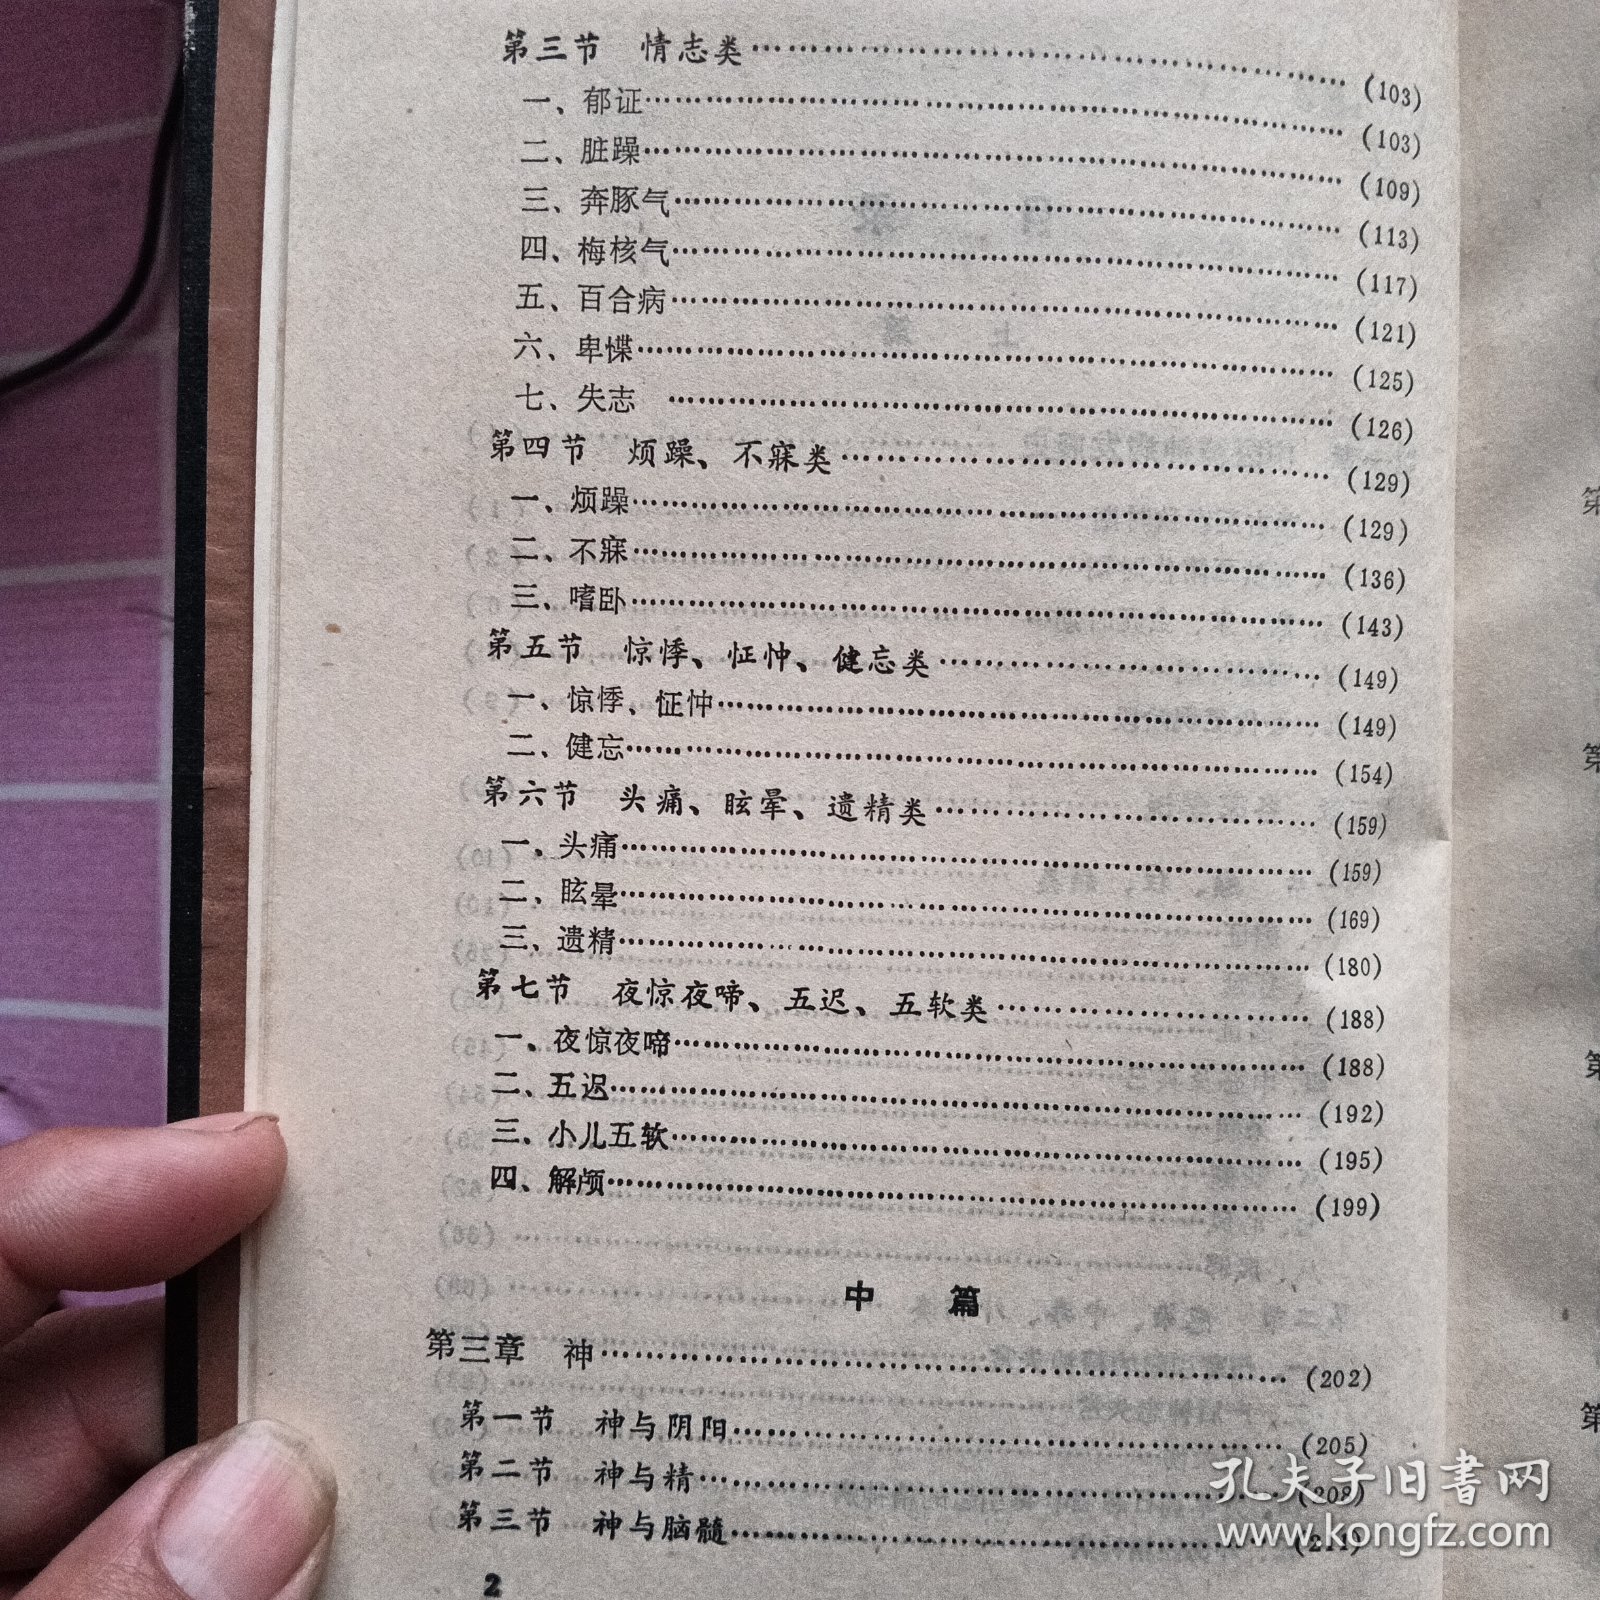 第三节 情志类……(103)
一、郁证……(103)
二、脏躁……(109)
三、奔豚气……(113)
四、梅核气……(117)
五、百合病……(121)
六、卑惵……(125)
七、失志……(126)
第四节 烦躁、不寐类……(129)
一、烦躁……(129)
二、不寐……(136)
三、嗜卧……(143)
第五节 惊悸、怔忡、健忘类……(149)
一、惊悸、怔忡……(149)
二、健忘……(154)
第六节 头痛、眩晕、遗精类……(159)
一、头痛……(159)
二、眩晕……(169)
三、遗精……(180)
第七节 夜惊夜啼、五迟、五软类……(188)
一、夜惊夜啼……(188)
二、五迟……(192)
三、小儿五软……(195)
四、解颅……(199)
中 篇
第三章 神……(202)
第一节 神与阴阳……(205)
第二节 神与精……(208)
第三节 神与脑髓……(211)
2
孔夫子旧书网
www.kongfz.com
第
第
第
第